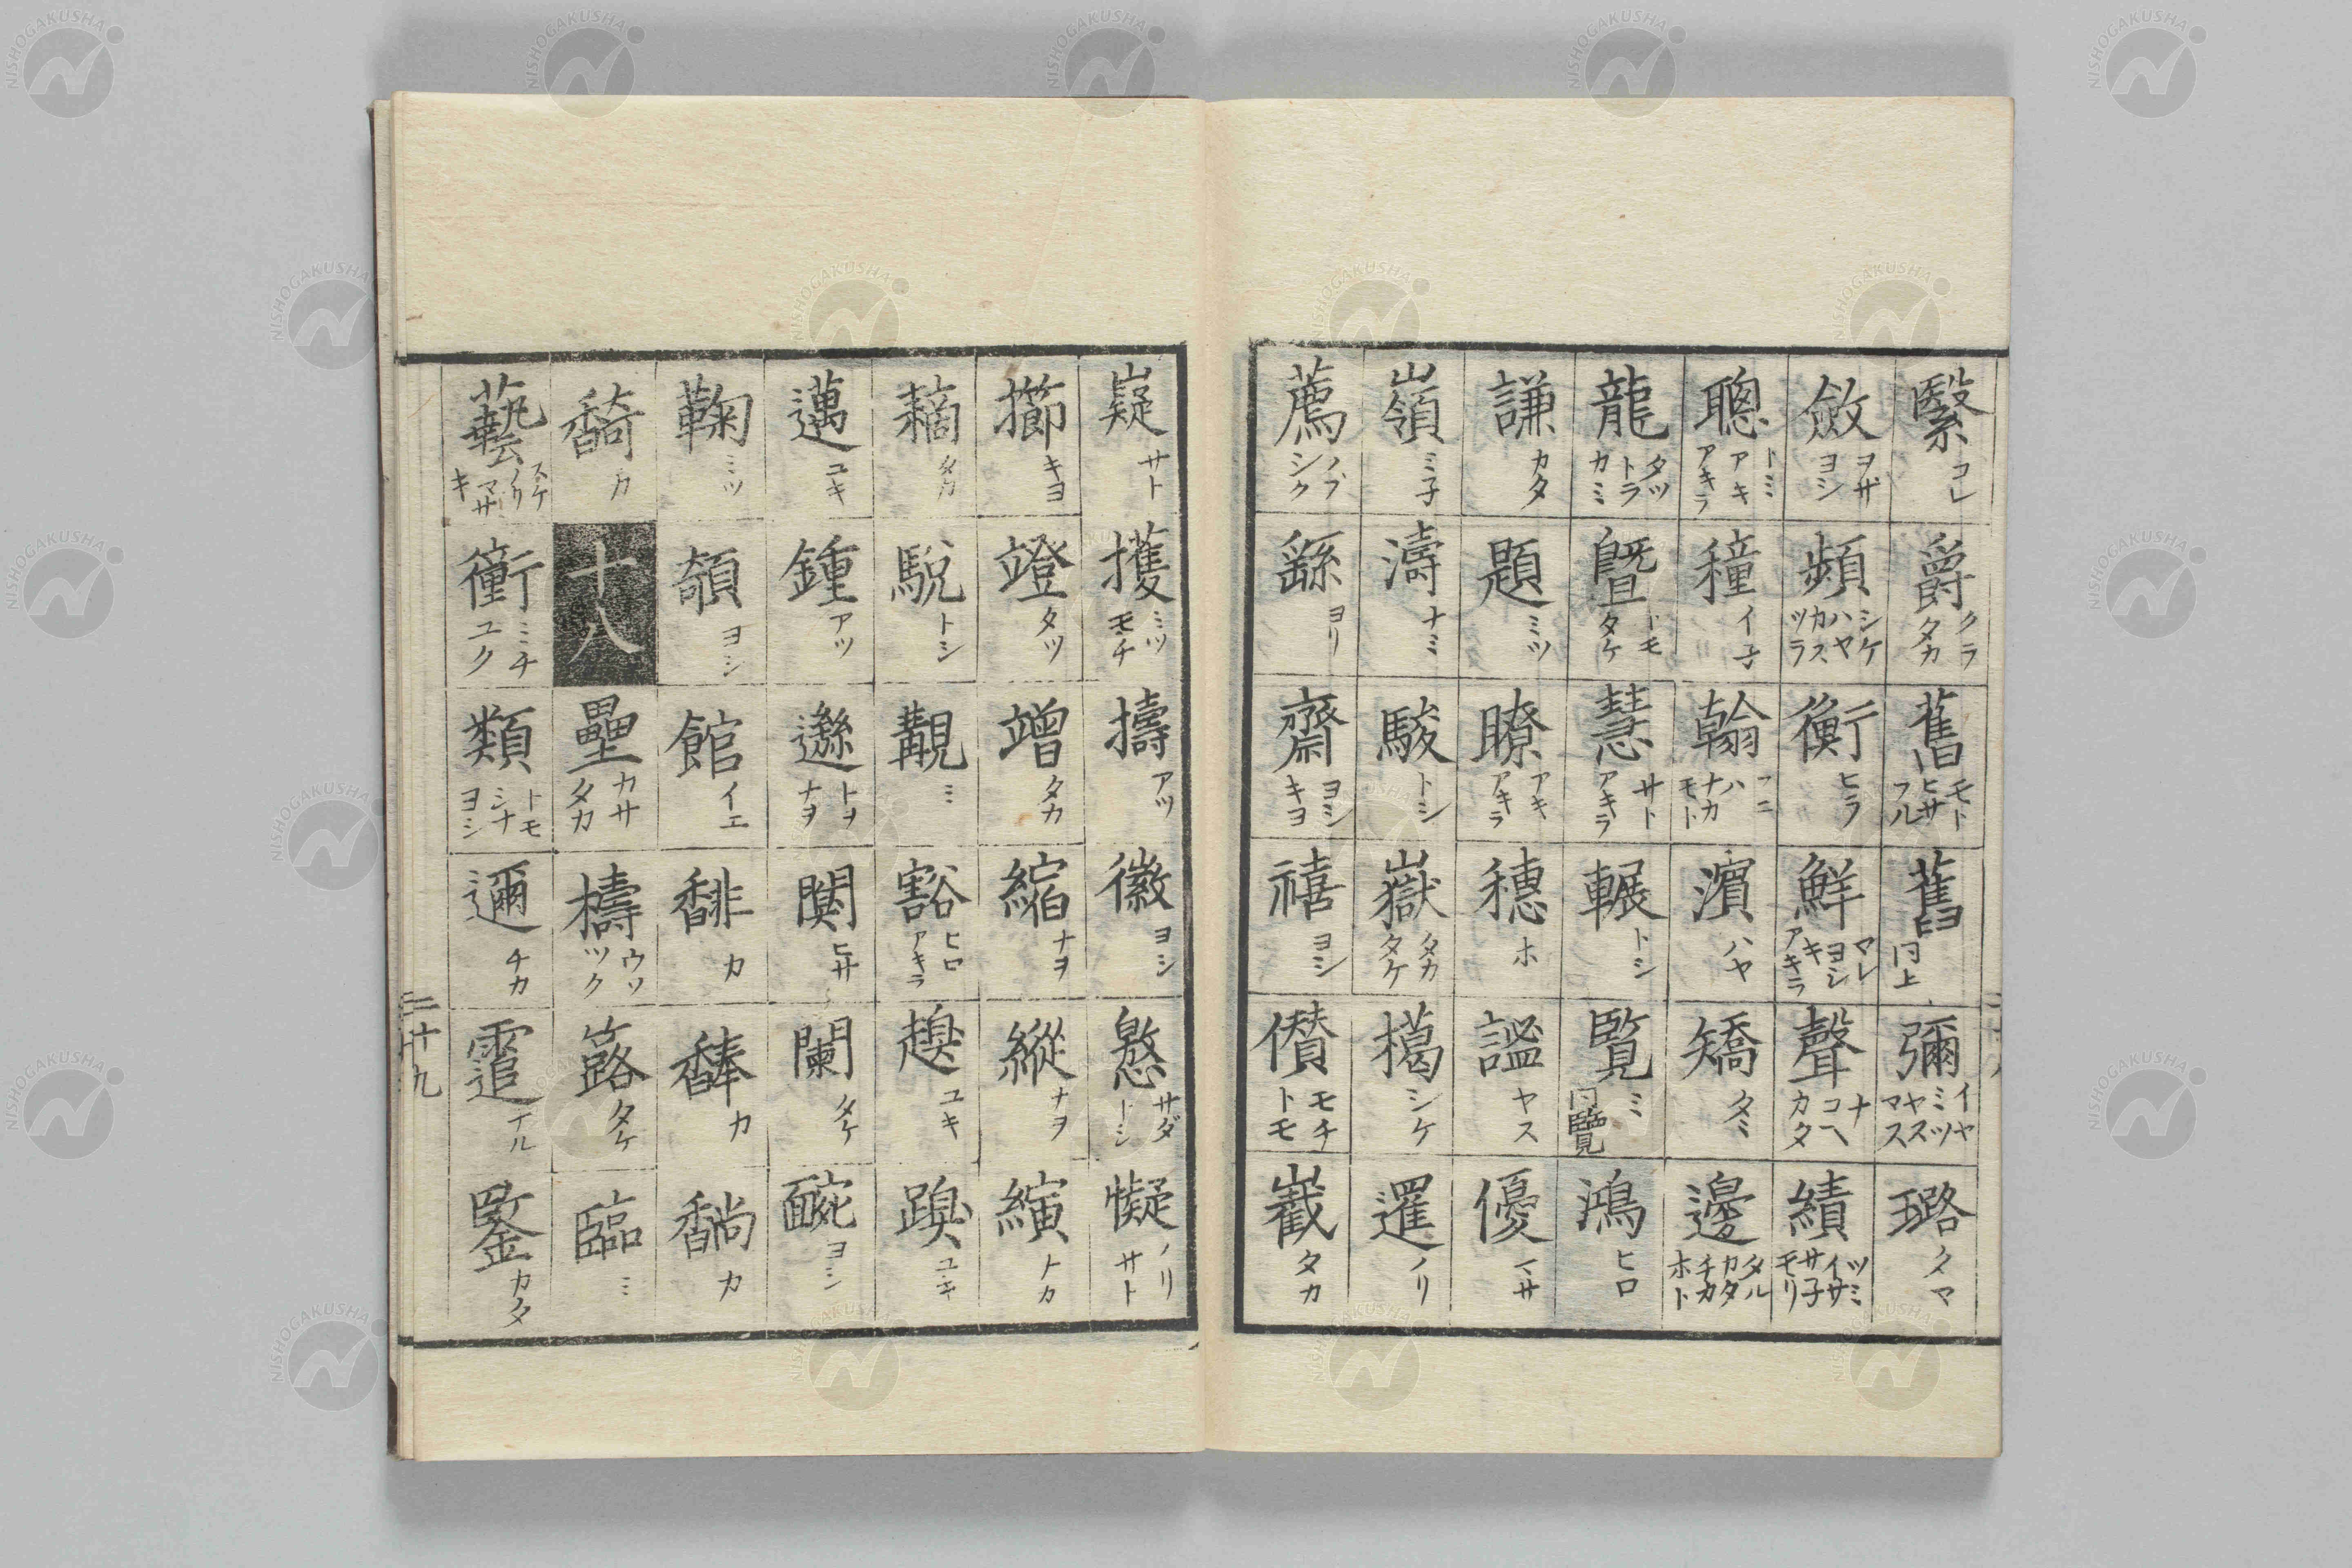 繄 コレ
爵 クラ タカ
舊 モト ヒサ フル
舊 同上
彌 イヤ ミツ ヤス マス
璐 タマ
斂 ヲザ ヨシ
頻 シケ ハヤ カス ツラ
衡 ヒラ
鮮 マレ ヨシ キ アキラ
聲 ナ コヘ カタ
績 ツミ イサ サ子 モリ
聰 トミ アキ アキラ
穜 イ子
翰 フミ ハ ナカ モト
濵 ハヤ
矯 タミ
邊 タル カタ チカ ホト
龍 タツ トラ カミ
曁 トモ タケ
慧 サト アキラ
輾 トシ
覧 ミ 同覽
鴻 ヒロ
謙 カタ
題 ミツ
瞭 アキ アキラ
穗 ホ
謐 ヤス
優 マサ
嶺 ミ子
濤 ナミ
駿 トシ
嶽 タカ タケ
暹 ノリ
薦 ノブ シク
繇 ヨリ
齋 ヨシ キヨ
禧 ヨシ
儹 モチ トモ
嶻 タカ
嶷 サト
擭 ミツ モチ
擣 アツ
徽 ヨシ
懇 サダ トシ
懝 ノリ サト
擳 キヨ
竳 タツ
竲 タカ
縮 ナヲ
縱 ナヲ
縯 トカ
タカ
駾 トシ
覯 ミ
豁 ヒロ アキラ
ユキ
ユキ
邁 ユキ
鍾 アツ
遜 トヲ ナヲ
闃 ヒサ
闌 タケ
ヨシ
鞠 ミツ
ヨシ
館 イエ
馡 カ
カ
カ
馣 カ
十八
壘 カサ タカ
檮 ウツ ツク
簬 タケ
臨 ミ
藝 スケ ノリ マサ キ
衝 ミチ ユク
類 トモ シナ ヨシ
邇 チカ
イル
鍳 カタ
二十九